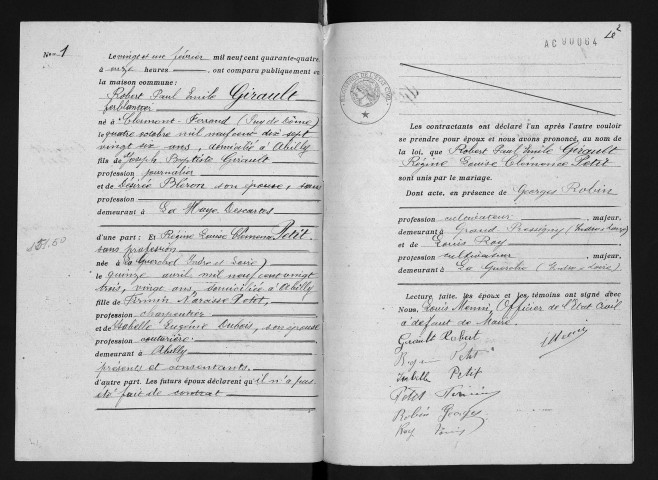 No 1
Le vingt et une février mil neuf cent quarante-quatre,
à onze heures, ont comparu publiquement en
la maison commune:
Robert Paul Emile Girault
ferblantier
né à Clermont-Ferrand (Puy de Dôme)
le quatre octobre mil neuf cent dix sept
vingt six ans, domicilié à Abilly
fils de Joseph Baptiste Girault
profession journalier
et de Désirée Bleron son épouse, sans
profession
demeurant à La Haye Descartes
d'une part: Et Régine Louise Clémence Petit
sans profession
née à La Guerche (Indre et Loire)
le quinze avril mil neuf cent vingt
trois, vingt ans, domiciliée à Abilly
fille de Firmin Narcisse Petit,
profession charpentier
et de Isabelle Eugénie Dubois, son épouse
profession couturière
demeurant à Abilly
présents et consentants.
d'autre part. Les futurs époux déclarent qu'il n'a pas
été fait de contrat
AC00064
Les contractants ont déclaré l'un après l'autre vouloir
se prendre pour époux et nous avons prononcé, au nom de
la loi, que Robert Paul Emile Girault
Régine Louise Clémence Petit
sont unis par le mariage.
Dont acte, en présence de Georges Robin
profession cultivateur, majeur,
demeurant à Grand Pressigny (Indre & Loire)
et de Louis Roy
profession cultivateur, majeur,
demeurant à La Guerche (Indre & Loire).
Lecture faite, les époux et les témoins ont signé avec
Nous, Louis Officier de l'Etat Civil
à défaut de Maire
Girault Robert
Petit
Isabelle Petit
Petit Firmin
Robin Georges
Roy Louis